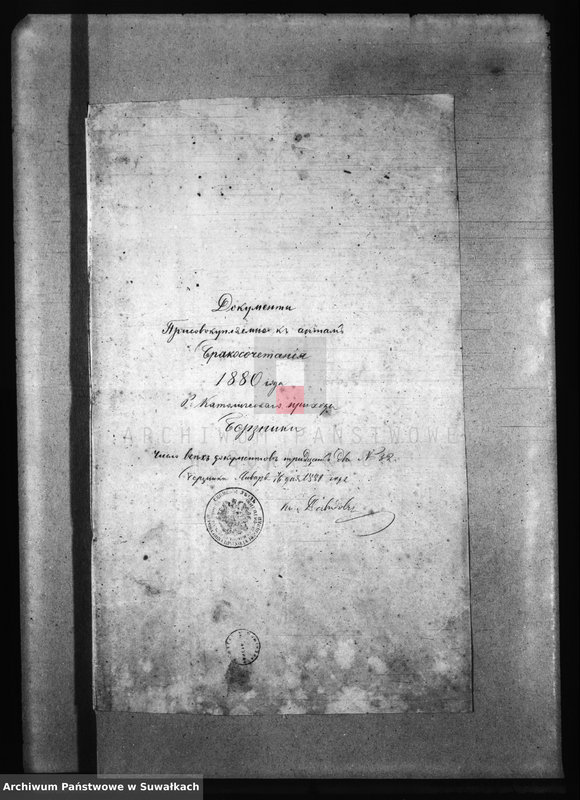 Документы
Присовокупляемые къ актамъ
Бракосочетанія
1880 года
Р. Католическаго прихода
Бержники
Число всехъ документовъ тридцать два № 32.
Бержники Январь дня 1881 года
ARCHIWUM PAŃSTWOWE
Archiwum Państwowe w Suwałkach